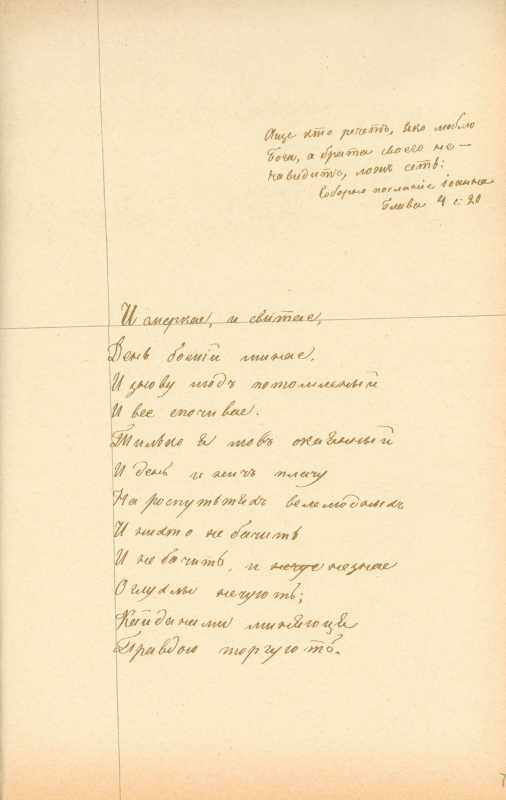 Аще кто речетъ, яко люблю
Бога, а брата своего не-
навидитъ, ложъ есть:
Соборно посланіе Іоанна
Глава 4 с: 20
И смеркае, и свитае,
День божій минае,
И знову людъ потомленый
И все спочивае.
Тилько я мовъ окаянный
И день и ничъ плачу
На роспуттяхъ велелюдныхъ
И нихто не бачить
И не бачить, и нечуе незнае
Оглухлы нечують;
Кайданами миняюця
Правдою торгують.